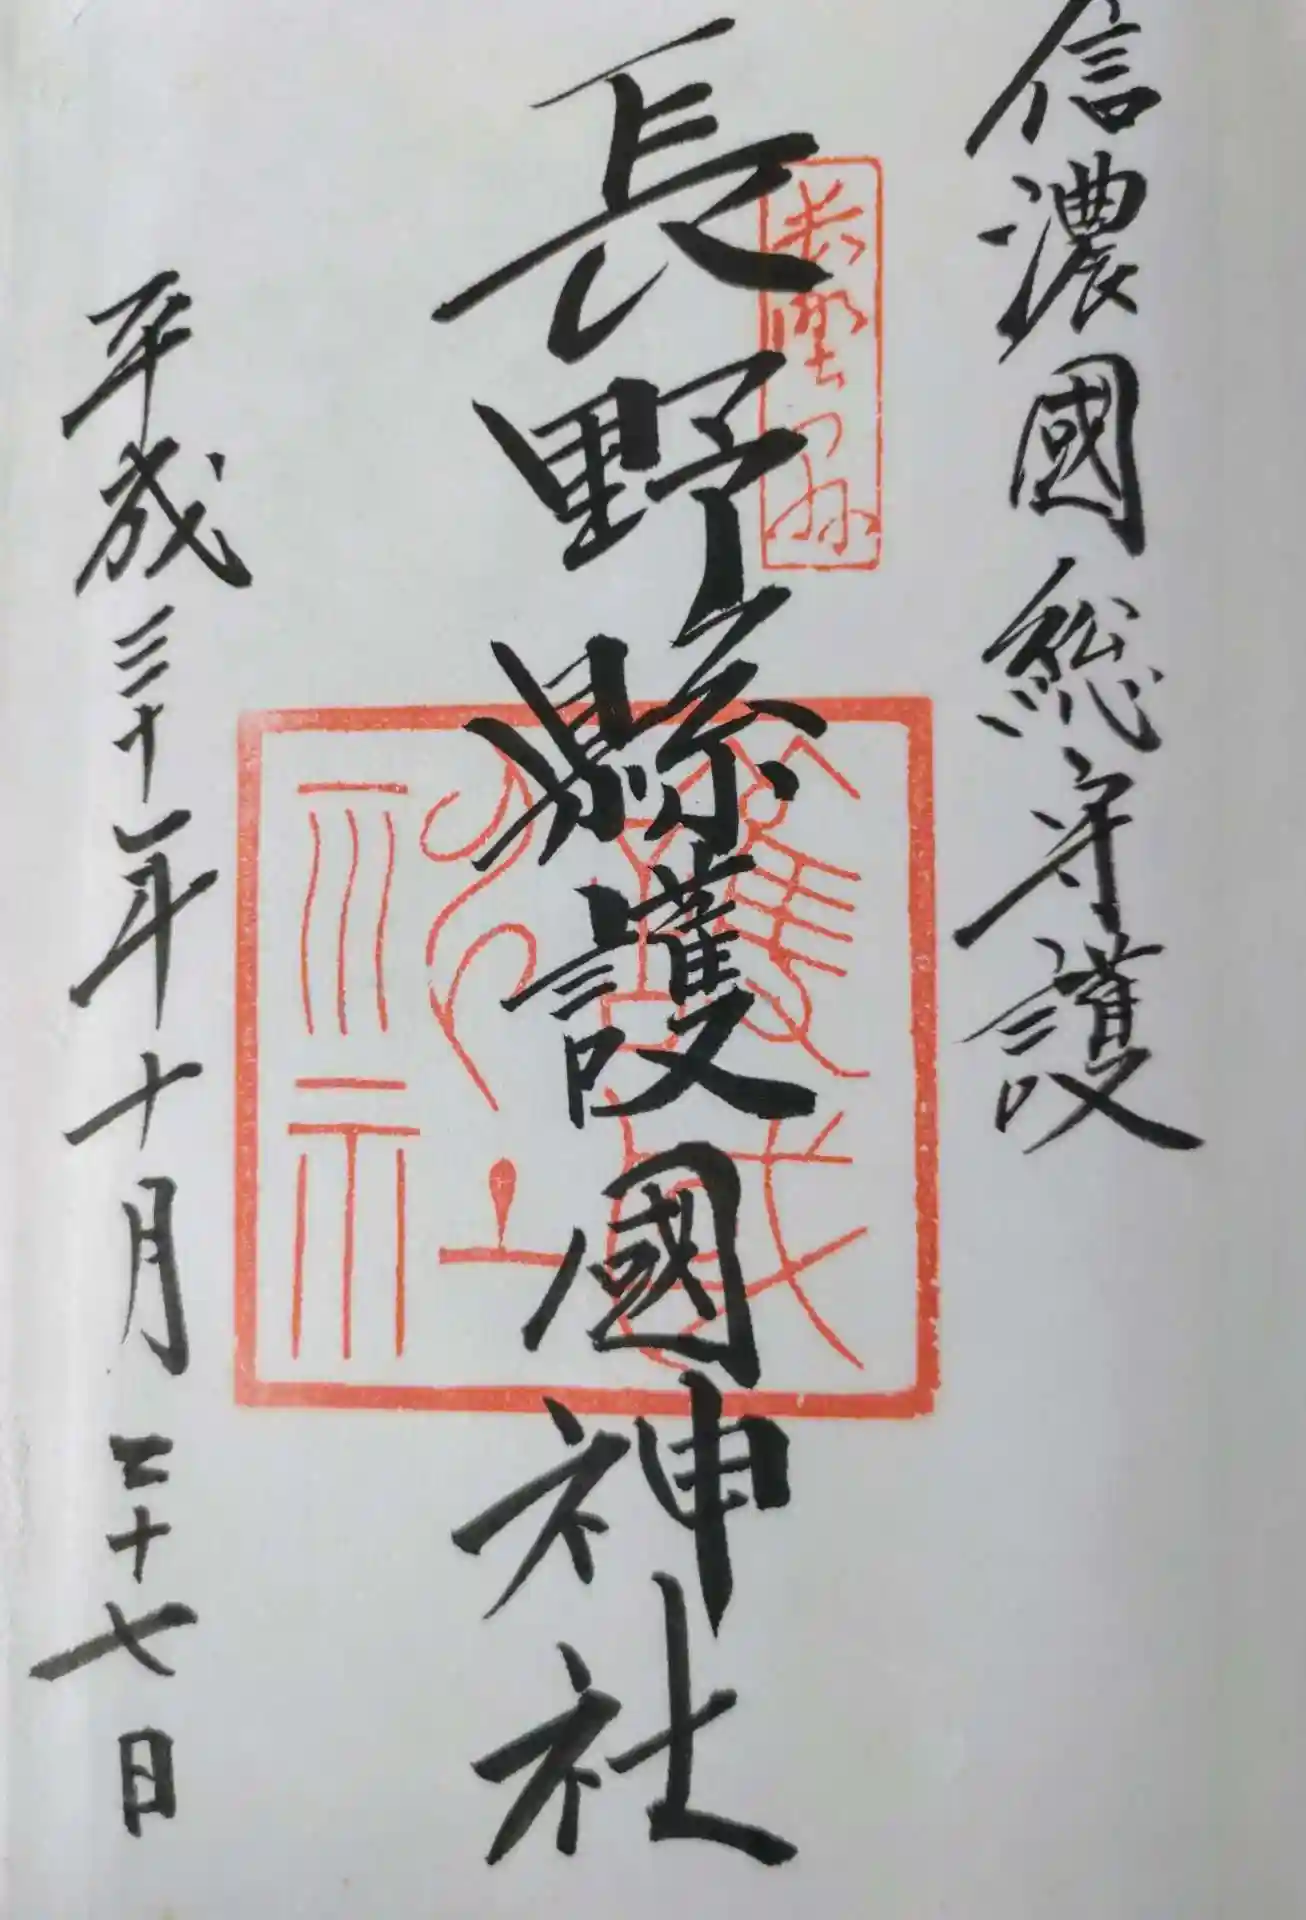 信濃國総守護
長野縣
長野縣護國神社
護國神社
平成三十年十月二十七日